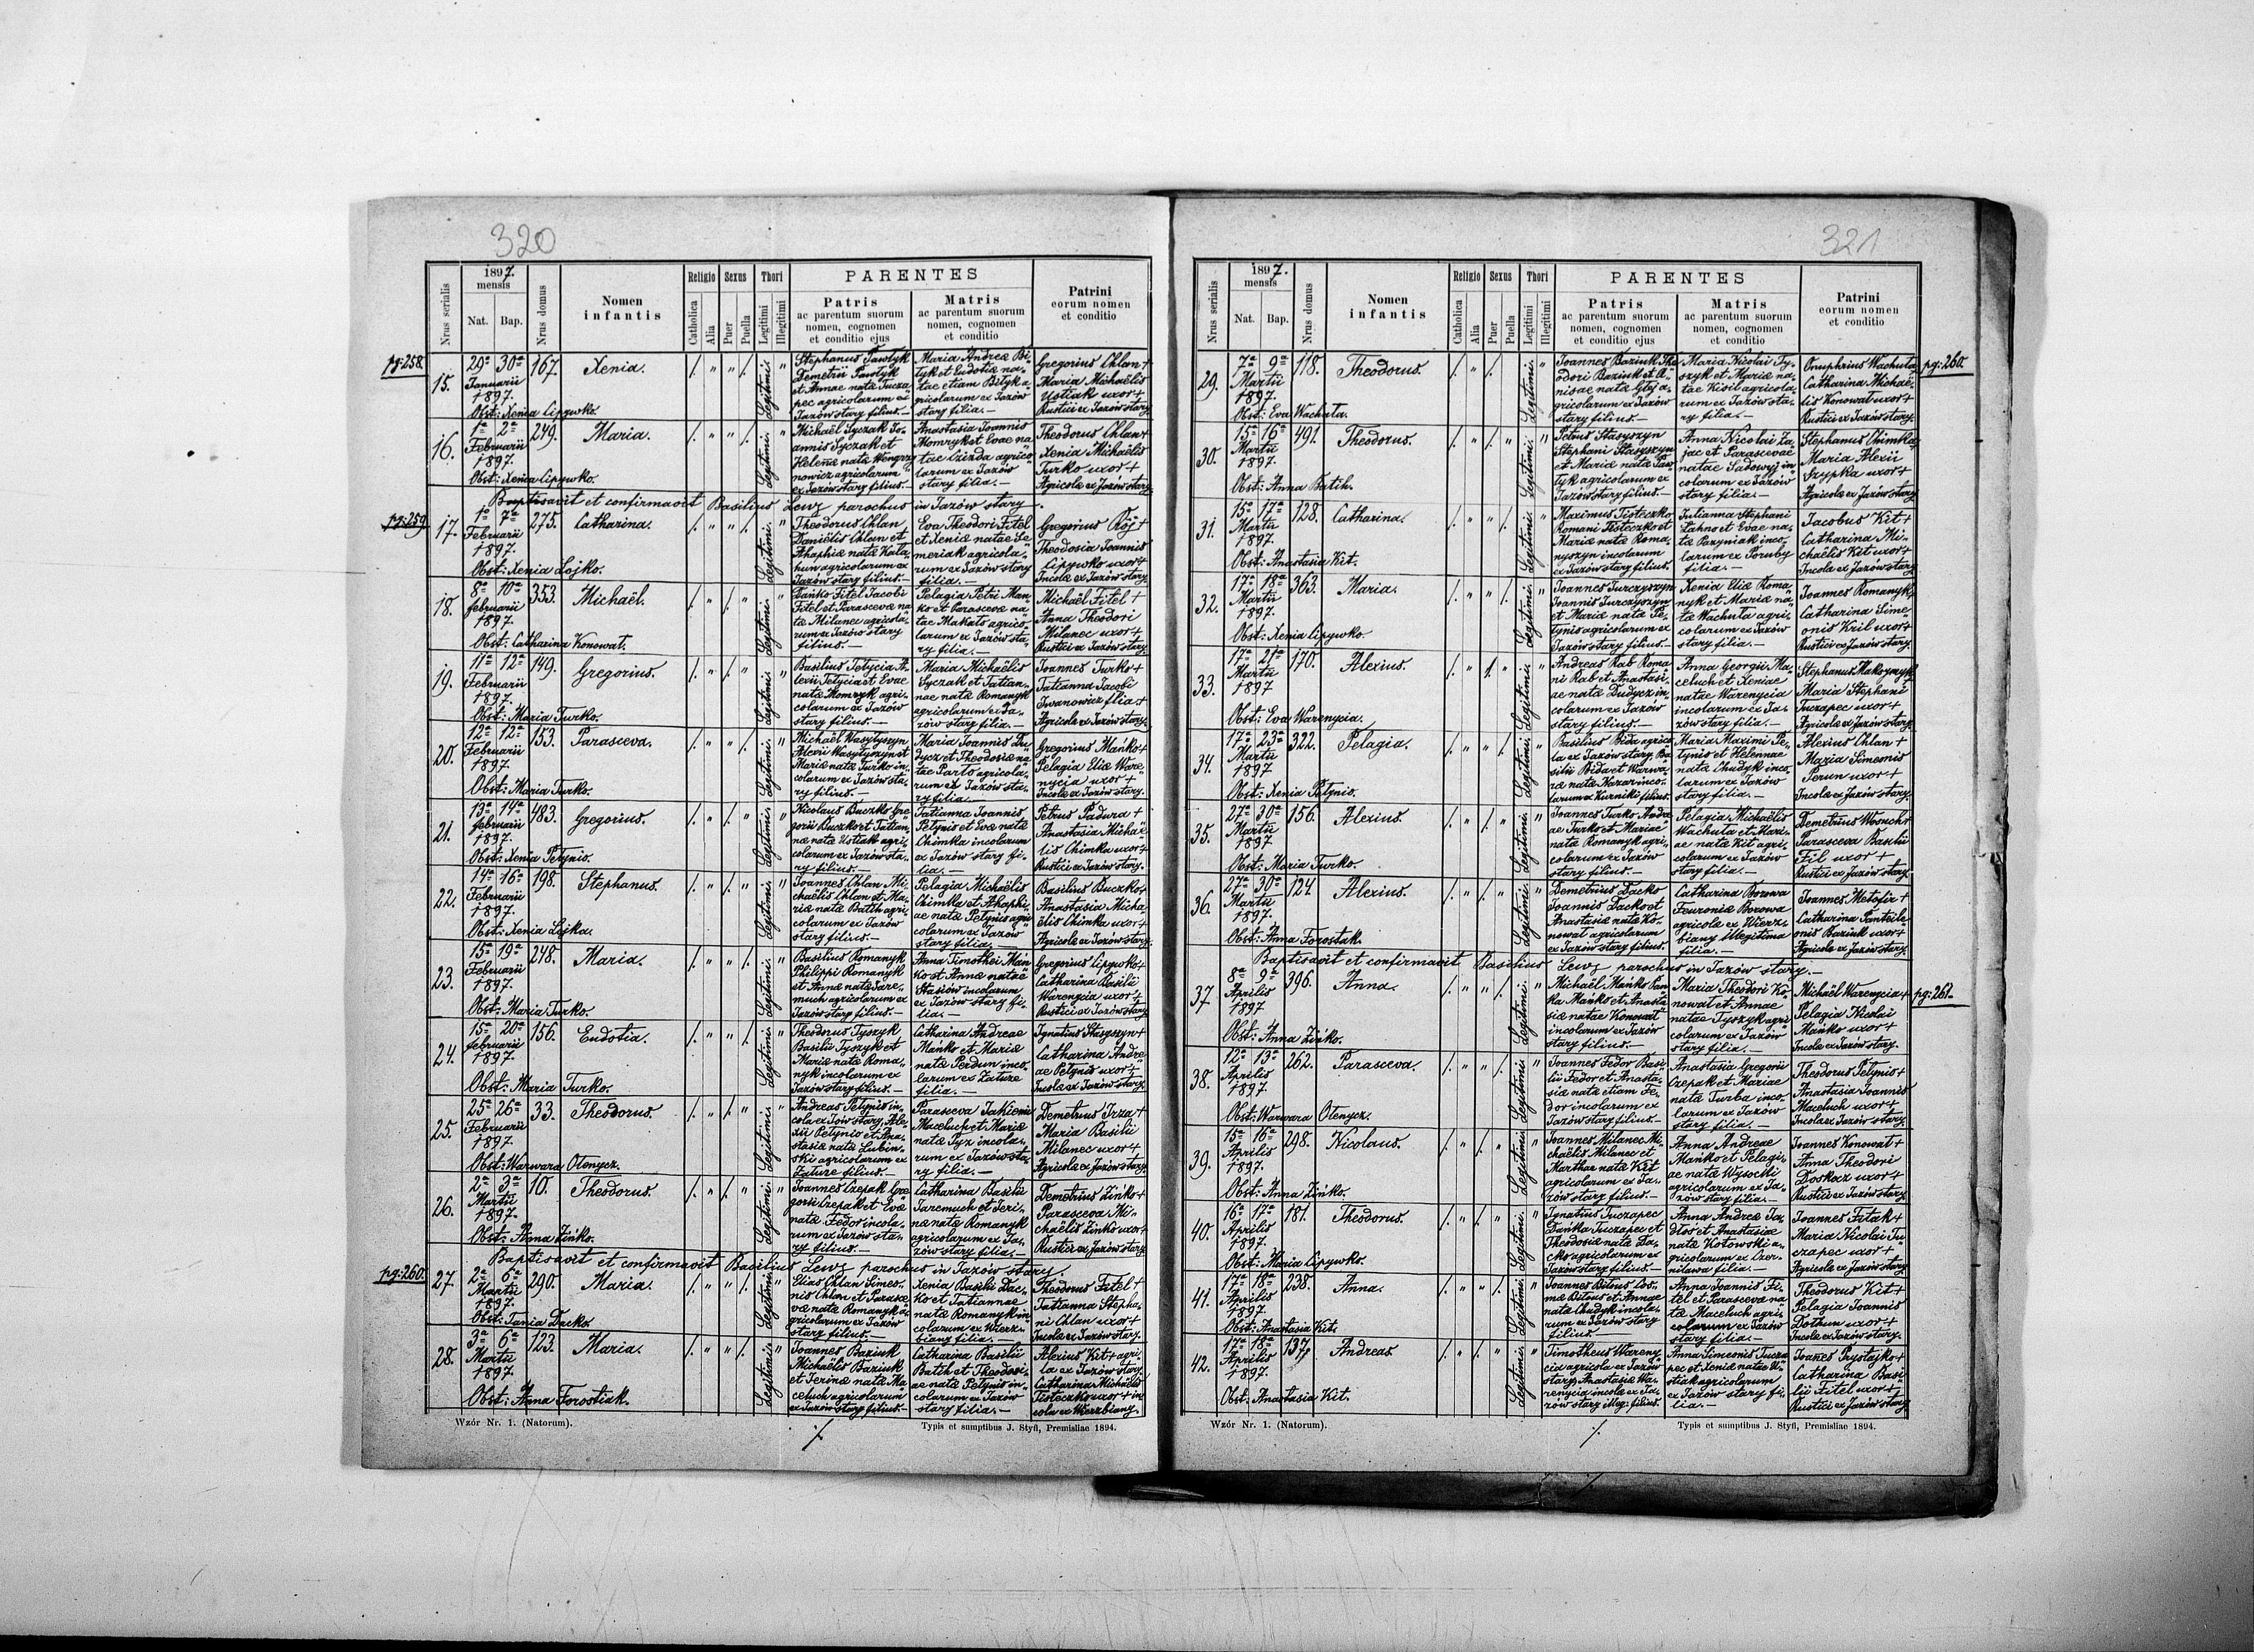 320
1897.
mensis
Nrus serialis
Nat.
Bap.
Nrus domus
Nomen
infantis
Religio
Catholica
Alia
Sexus
Puer
Puella
Thori
Legitimi
Illegitimi
PARENTES
Patris
ac parentum suorum
nomen, cognomen
et conditio ejus
Matris
ac parentum suorum
nomen, cognomen
et conditio
Patrini
eorum nomen
et conditio
pg: 258.
15.
29a 30a
Januarii
1897.
167.
Xenia.
Legitimi.
Stephanus Pawlyk
Demetrii Pawlyk
et Annae nata Tucza
pec agricolarum ex
Jazów stary filius.—
Maria Andreæ Bi-
tyk et Eudotiæ na-
tae etiam Bityk a-
gricolarum ex Jazów
stary filia.—
Gregorius Chlan +
Maria Michaëlis
Ustiak uxor +
Rustici ex Jazów stary
Obst: Xenia Lipywko.
16.
1a 2a
Februarii
1897.
249.
Maria.
Legitimi.
Michaël Syczak Jo-
annis Syczak et
Helenæ natæ Wengrzy
nowicz agricolarum
ex Jazów stary filius.—
Anastasia Joannis
Momryk et Evae na
tae Czizda agrico
larum ex Jazów
stary filia.—
Theodorus Chlan +
Xenia Michaëlis
Turko uxor +
Agricolæ ex Jazów stary
Obst: Xenia Lipywko.
Baptisavit et confirmavit Basilius Lewz parochus in Jazów stary.
pg: 259
17.
1a 7a
Februarii
1897.
275.
Catharina.
Legitimi.
Theodorus Chlan
Daniëlis Chlan et
Ahaphiæ natæ Kata-
hun agricolarum ex
Jazów stary filius.—
Eva Theodori Fitel
et Xeniæ natae Se
meriak agricola-
rum ex Jazów stary
filia.—
Gregorius Rój +
Theodosia Joannis
Lipywko uxor +
Incolæ ex Jazów stary
Obst: Xenia Lojko.
18.
8a 10a
februarii
1897.
353.
Michaël.
Legitimi.
Danko Fitel Jacobi
Fitel et Parascevæ na
tæ Milanec agricola-
rum ex Jazów stary
filius.—
Pelagia Petri Man-
ko et Parascevæ na-
tae Makats agrico
larum ex Jazów sta-
ry filia.—
Michaël Fitel +
Anna Theodori
Milanec uxor +
Rustici ex Jazów stary
Obst: Catharina Konowat.
19.
11a 12a
Februarii
1897.
149.
Gregorius.
Legitimi.
Basilius Tetycia A-
lexii Tetycia et Evae
natæ Momryk agri-
colarum ex Jazów
stary filius.—
Maria Michaëlis
Syczak et Tatian-
nae natæ Romanyk
agricolarum ex Ja-
zów stary filia.—
Joannes Turko +
Tatianna Jacobi
Iwanowicz filia +
Agricolæ ex Jazów stary
Obst: Maria Turko.
20.
12a 12a
Februarii
1897.
153.
Parasceva.
Legitimi.
Michaël Wasylyszyn
Alexii Wasylyszyn et
Mariæ natæ Turko in-
colarum ex Jazów sta-
ry filius.—
Maria Joannis Du
dycz et Theodosiæ na
tae Parto agricola-
rum ex Jazów sta-
ry filia.—
Gregorius Mańko +
Pelagia Eliæ Ware
nycia uxor +
Incolæ ex Jazów stary.
Obst: Maria Turko.
21.
13a 14a
februarii
1897.
483.
Gregorius.
Legitimi.
Nicolaus Buczko Gre
gorii Buczko et Tatian-
næ natæ Ustiak agri-
colarum ex Jazów sta-
ry filius.—
Tatianna Joannis
Petynio et Evæ natæ
Chimka incolarum
ex Jazów stary fi-
lia.—
Petrus Padura +
Anastasia Michaë
lis Chimka uxor +
Rustici ex Jazów stary.
Obst: Xenia Petynio.
22.
14a 16a
Februarii
1897.
198.
Stephanus.
Legitimi.
Joannes Chlan Mi-
chaëlis Chlan et Ma-
riæ natæ Batih agri-
colarum ex Jazów
stary filius.—
Pelagia Michaëlis
Chimka et Ahaphi-
ae natæ Petynio agri
colarum ex Jazów
stary filia.—
Basilius Buczko +
Anastasia Micha
ëlis Chimka uxor +
Agricolæ ex Jazów stary.
Obst: Xenia Lojka.
23.
15a 19a
Februarii
1897.
248.
Maria.
Legitimi.
Basilius Romanyk
Philippi Romanyk
et Annæ natæ Jare-
much agricolarum ex
Jazów stary filius.—
Anna Timothei Mań
ko et Annæ natæ
Stasiów incolarum
ex Jazów stary fi-
lia.—
Gregorius Lipywko +
Catharina Basilii
Warenycia uxor +
Rustici ex Jazów stary
Obst: Maria Turko.
24.
15a 20a
februarii
1897.
156.
Eudotia.
Legitimi.
Theodorus Tyszyk
Basilii Tyszyk et
Mariæ natæ Roma-
nyk incolarum ex
Jazów stary filius.—
Catharina Andreae
Mańko et Mariæ
natæ Perdun inco-
larum ex Załuże
filia.—
Ignatius Stasyszyn +
Catharina Andre
ae Petynio uxor +
Incolæ ex Jazów stary
Obst: Maria Turko.
25.
25a 26a
Februarii
1897.
33.
Theodorus.
Legitimi.
Andreas Petynio in-
cola ex Jazów stary, Ale-
xii Petynio et Ana-
stasiæ natæ Lubin-
ski agricolarum ex
Załuże filius.—
Parasceva Jakiemi
Maceluch et Mariæ
natæ Tyz incola-
rum ex Jazów sta-
ry filia.—
Demetrius Irza +
Maria Basilii
Milanec uxor +
Agricolæ ex Jazów stary
Obst: Warwara Otenycz.
26.
2a 3a
Martii
1897.
10.
Theodorus.
Legitimi.
Joannes Czepak Gre
gorii Czepak et Evæ
natæ Fedor incola-
rum ex Jazów sta-
ry filius.—
Catharina Basilii
Jaremuch et Teri-
næ natæ Romanyk
agricolarum ex Ja-
zów stary filia.—
Demetrius Zińko +
Parasceva Mi-
chaëlis Zinko uxor +
Rustici ex Jazów stary
Obst: Anna Zińko.
Baptisavit et confirmavit Basilius Lewz parochus in Jazów stary.
pg: 260.
27.
2a 6a
Martii
1897.
290.
Maria.
Legitimi.
Elias Chlan Simeo-
nis Chlan et Parasce
væ natæ Romanyk a-
gricolarum ex Jazów
stary filius.—
Xenia Basilii Dac-
ko et Tatiannae
natæ Romanyk in
colarum ex Wierz-
biany filia.—
Theodorus Fitel +
Tatianna Stepha-
ni Chlan uxor +
Incolæ ex Jazów stary.
Obst: Tania Dacko.
28.
3a 6a
Martii
1897.
123.
Maria.
Legitimi.
Joannes Baziuk
Michaëlis Baziuk
et Terinæ natæ Ma
celuch agricolarum
ex Jazów stary filius.—
Catharina Basilii
Batih et Theodosi-
ae natæ Petynio in-
colarum ex Jazów
stary filia.—
Alexius Kit + agri-
la ex Jazów stary
Catharina Michaëlis
Tisteczko uxor + in
cola ex Wierzbiany.
Obst: Anna Forostiak.
Wzór Nr. 1. (Natorum).
Typis et sumptibus J. Styfi, Premisliae 1894.
321
1897.
mensis
Nrus serialis
Nat.
Bap.
Nrus domus
Nomen
infantis
Religio
Catholica
Alia
Sexus
Puer
Puella
Thori
Legitimi
Illegitimi
PARENTES
Patris
ac parentum suorum
nomen, cognomen
et conditio ejus
Matris
ac parentum suorum
nomen, cognomen
et conditio
Patrini
eorum nomen
et conditio
pg: 260.
29.
7a 9a
Martii
1897.
118.
Theodorus.
Legitimi.
Joannes Baziuk The
odori Baziuk et A-
nisae natæ Glej a-
gricolarum ex Jazów
stary filius.—
Maria Nicolai Ty-
szyk et Mariæ na-
tae Kisil agricola-
rum ex Jazów sta-
ry filia.—
Onuphrius Wachuta
Catharina Michaë-
lis Konowat uxor +
Rustici ex Jazów stary.
Obst: Eva Wachuta.
30.
15a 16a
Martii
1897.
491.
Theodorus.
Legitimi.
Petrus Stasyszyn
Stephani Stasyszyn
et Mariæ natæ Paw
lyk agricolarum ex
Jazów stary filius.—
Anna Nicolai Za-
jac et Parascevae
natae Sadowyj in-
colarum ex Jazów
stary filia.—
Stephanus Chimka +
Maria Alexii
Szypka uxor +
Agricolæ ex Jazów stary
Obst: Anna Batih.
31.
15a 17a
Martii
1897.
128.
Catharina.
Legitimi.
Maximus Tisteczko
Romani Tisteczko et
Mariæ natæ Roma-
nyszyn incolarum
ex Jazów stary filius.
Julianna Stephani
Lahno et Evae na-
tæ Pazyniak inco-
larum ex Poruby
filia.—
Jacobus Kit +
Catharina Mi-
chaëlis Kit uxor +
Incolæ ex Jazów stary
Obst: Anastasia Kit.
32.
17a 18a
Martii
1897.
363.
Maria.
Legitimi.
Joannes Turczyszyn
Joannis Turczyszyn
et Mariæ natæ Pe-
tynio agricolarum ex
Jazów stary filius.—
Xenia Eliæ Roma-
nyk et Mariæ na-
tæ Wachuta agri-
colarum ex Jazów
stary filia.—
Joannes Romanyk +
Catharina Sime-
onis Kril uxor +
Rustici ex Jazów stary.
Obst: Xenia Lipywko.
33.
17a 21a
Martii
1897
170.
Alexius.
Legitimi.
Andreas Rab Roma
ni Rab et Anastasi-
ae natæ Dudycz in-
colarum ex Jazów
stary filius.—
Anna Georgii Ma-
celuch et Xeniae
natae Warenycia
incolarum ex Ja-
zów stary filia.—
Stephanus Makoyzyk +
Maria Stephani
Tuczapec uxor +
Agricolæ ex Jazów stary
Obst: Eva Warenycia.
34.
17a 23a
Martii
1897
322.
Pelagia.
Legitimi.
Basilius Bida agrico
la ex Jazów stary, Ba
silii Bida et Warwa-
ræ natæ Kazar inco-
larum ex Kurniki filius.
Maria Maximi Pe-
tynio et Helennae
natæ Chudyk inco-
larum ex Jazów
stary filia.—
Alexius Chlan +
Maria Simeonis
Perun uxor +
Incolæ ex Jazów stary.
Obst: Xenia Petynio.
35.
27a 30a
Martii
1897
156.
Alexius.
Legitimi.
Joannes Turko Andre
ae Turko et Mariae
natæ Romanyk agri-
colarum ex Jazów
stary filius.—
Pelagia Michaëlis
Wachuta et Mari-
ae natæ Kit agri-
colarum ex Jazów
stary filia.—
Demetrius Wosuch +
Parasceva Basilii
Fil uxor +
Rustici ex Jazów stary
Obst: Maria Turko.
36.
27a 30a
Martii
1897.
124
Alexius.
Legitimi.
Demetrius Dacko
Joannis Dacko et
Anastasiæ natæ Ko-
nowat agricolarum
ex Jazów stary filius.
Catharina Borowa
Feuroniæ Borowa
agricolæ ex Wierz-
biany illegitima
filia.—
Joannes Metofir +
Catharina Pantele-
onis Baziuk uxor +
Agricolæ ex Jazów stary
Obst: Anna Forostak.
Baptisavit et confirmavit Basilius Lewz parochus in Jazów stary.—
pg: 261.
37
8a 9a
Aprilis
1897
396.
Anna.
Legitimi.
Michaël Mańko Pan-
ka Mańko et Anasta-
siæ natae Konowat
incolarum ex Jazów
stary filius.—
Maria Theodori Ko-
nowat et Annae
natae Tyszyk agri
colarum ex Jazów
stary filia.—
Michaël Warenycia +
Pelagia Nicolai
Mańko uxor +
Incolæ ex Jazów stary.
Obst: Anna Zińko.
38.
12a 13a
Aprilis
1897
262.
Parasceva.
Legitimi.
Joannes Fedor Basi-
lii Fedor et Anasta-
siæ natæ etiam Fe-
dor incolarum ex
Jazów stary filius.—
Anastasia Gregorii
Czepak et Mariae
natæ Turba inco-
larum ex Jazów
stary filia.—
Theodorus Petynio +
Anastasia Joannis
Maceluch uxor +
Incolæ ex Jazów stary.
Obst: Warwara Otenycz.
39.
15a 16a
Aprilis
1897.
298.
Nicolaus.
Legitimi.
Joannes Milanec Mi-
chaëlis Milanec et
Marthae natæ Kit
agricolarum ex Ja-
zów stary filius.—
Anna Andreae
Mańko et Pelagi-
ae natæ Wysocki
agricolarum ex Ja-
zów stary filia.—
Joannes Konowat +
Anna Theodori
Doskocz uxor +
Rustici ex Jazów stary
Obst: Anna Zińko.
40.
16a 17a
Aprilis
1897.
181.
Theodorus.
Legitimi.
Ignatius Tuczapec
Danka Tuczapec et
Theodosiæ natæ Da-
cko agricolarum ex
Jazów stary filius.—
Anna Andreæ Ja-
dlos et Anastasiæ
natæ Kotowski a-
gricolarum ex Czer-
nilawa filia.—
Joannes Fitak +
Maria Nicolai Tu
czapec uxor +
Agricolæ ex Jazów stary
Obst: Maria Lipywko.
41.
17a 18a
Aprilis
1897.
238.
Anna.
Legitimi.
Joannes Bitous Cos-
mæ Bitous et Annae
natæ Chudyk incola-
rum ex Jazów stary
filius.—
Anna Joannis Fi-
tel et Parascevæ na-
tæ Maceluch agri-
colarum ex Jazów
stary filia.—
Theodorus Kit +
Pelagia Joannis
Dothun uxor +
Incolæ ex Jazów stary.
Obst: Anastasia Kit.
42.
17a 18a
Aprilis
1897.
137.
Andreas.
Legitimi.
Timotheus Wareny
cia agricola ex Jazów
stary, Anastasiæ Wa-
renycia, incolæ ex Ja-
zów stary illeg: filius.
Anna Simeonis Tucza
pec et Xeniæ natae U-
stiak agricolarum
ex Jazów stary fi-
lia.—
Joannes Prystajko +
Catharina Basi-
lii Fitel uxor +
Rustici ex Jazów stary
Obst: Anastasia Kit.
Wzór Nr. 1. (Natorum).
Typis et sumptibus J. Styfi, Premisliae 1894.